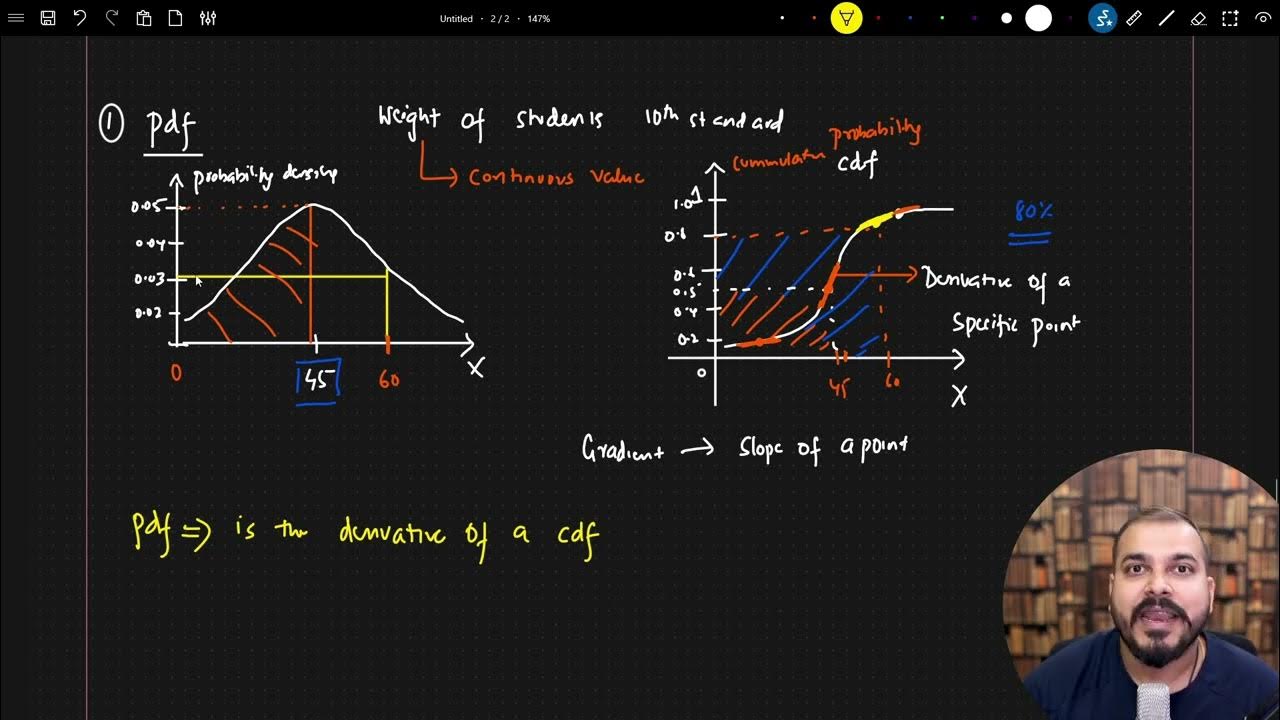 Untitled • 2 / 2 • 147%
① pdf
Weight of students 10th standard
continuous value
probability density
0.05
0.04
0.03
0.02
0
45
60
X
probability
cdf
1.0
0.6
0.5
0.4
0.2
0
45
60
X
80%
Derivative of a
specific point
Gradient → Slope of a point
pdf ⇒ is the derivative of a cdf